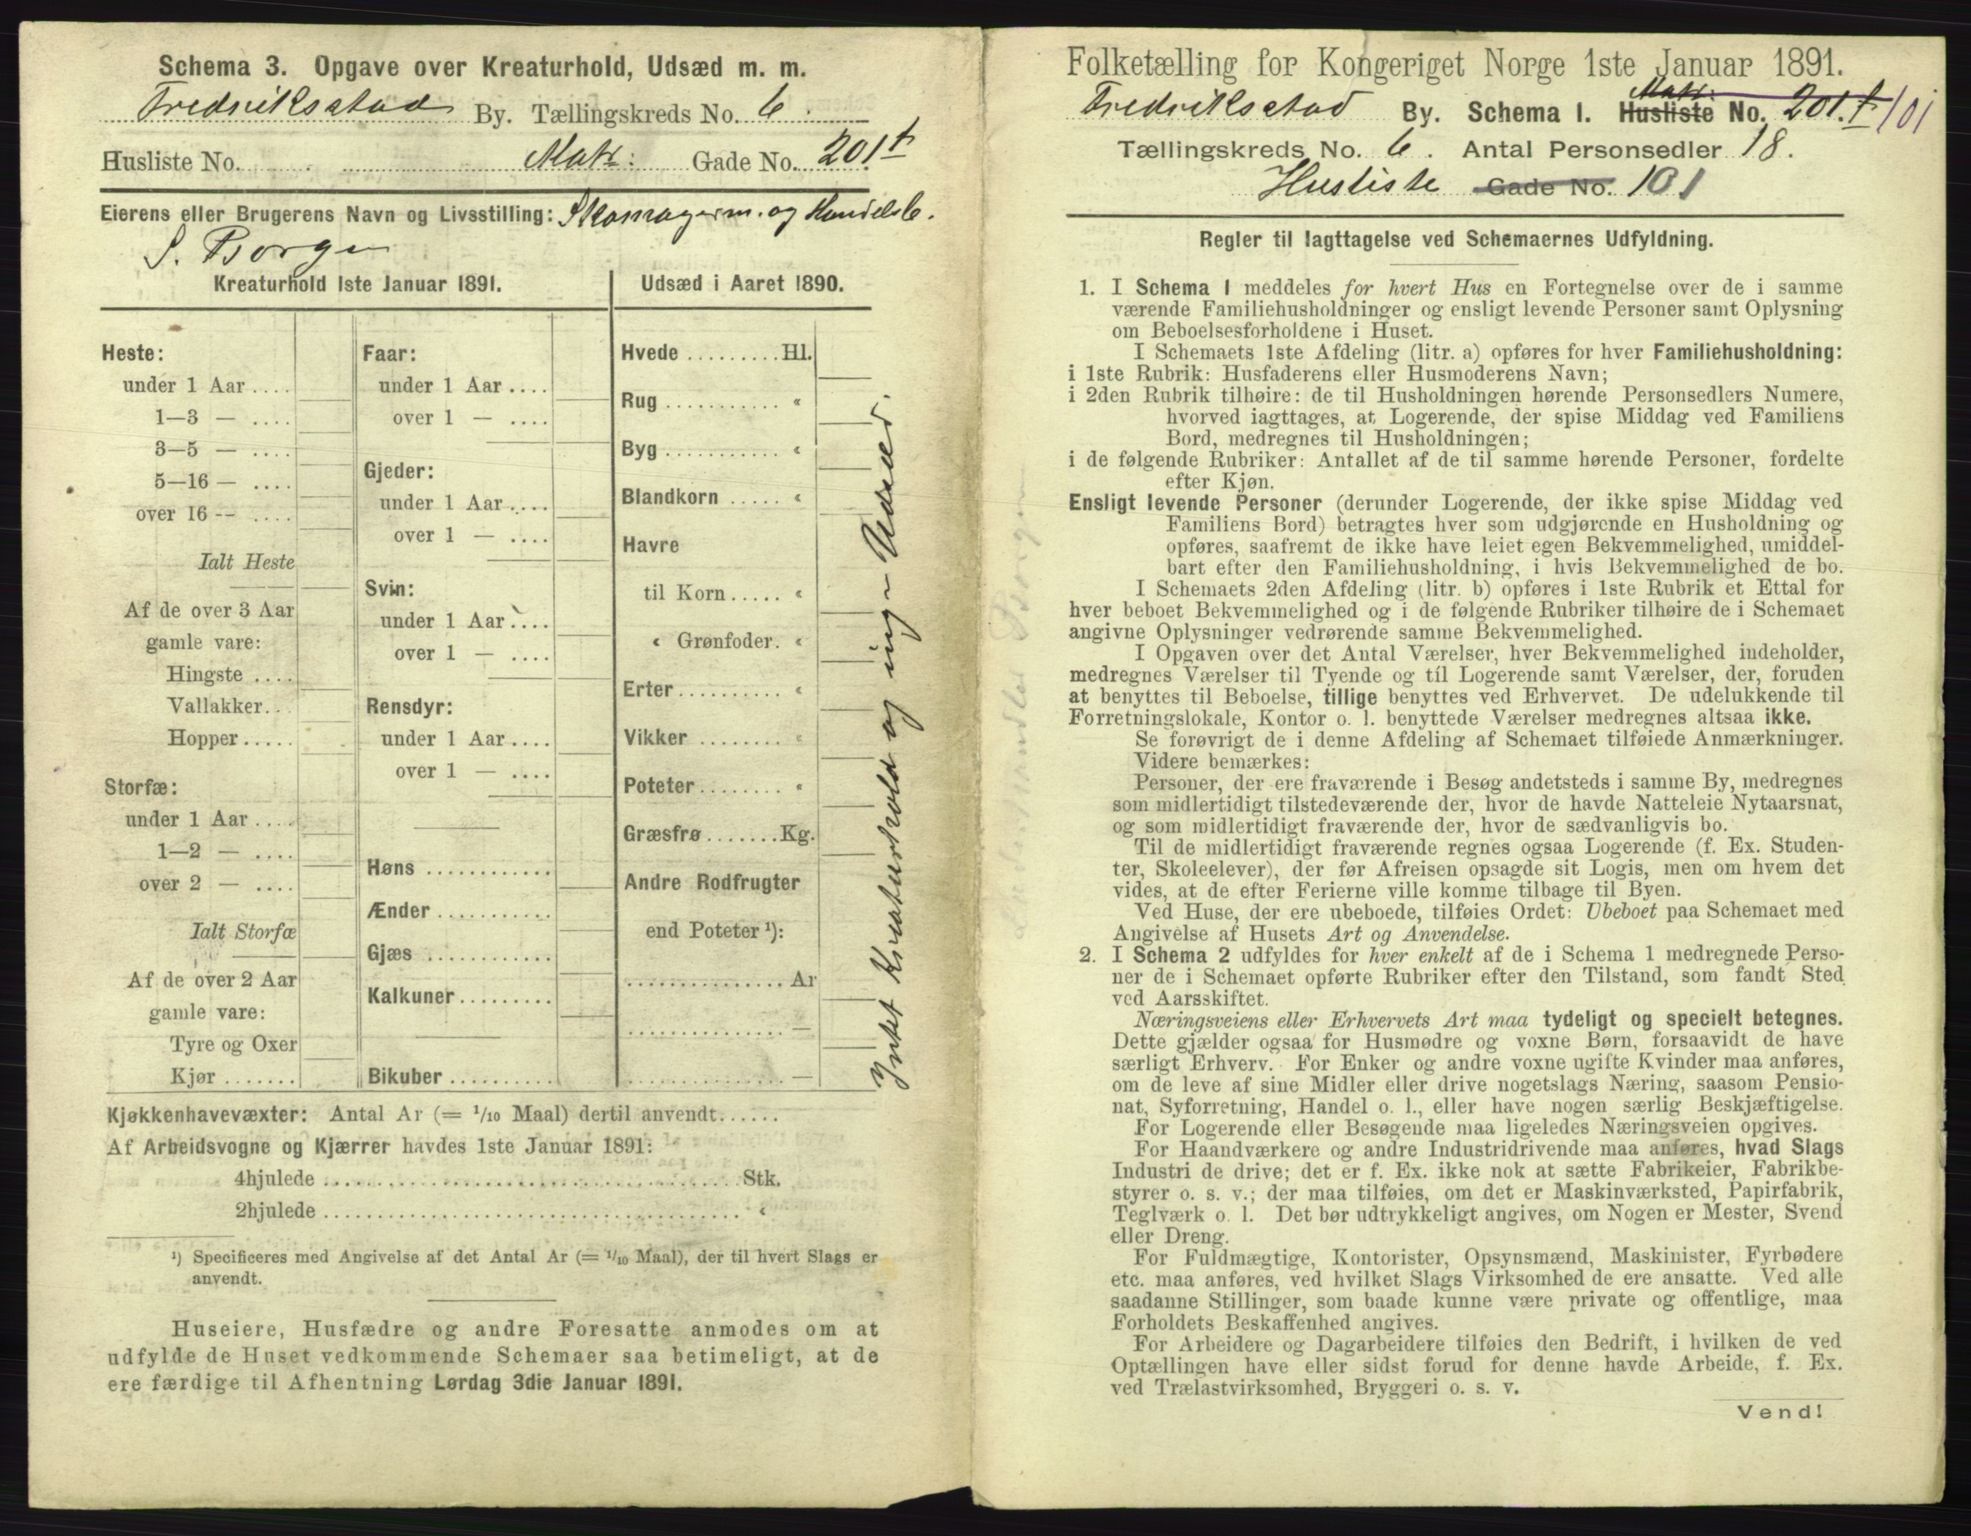 Schema 3. Opgave over Kreaturhold, Udsæd m. m.
Fredriksstad By. Tællingskreds No. 6.
Husliste No. Matr: Gade No. 201 t
Eierens eller Brugerens Navn og Livsstilling: Skomagerm. og Handelsb.
S. Borgen
Kreaturhold 1ste Januar 1891.
Heste:
under 1 Aar ....
1—3 — ....
3—5 — ....
5—16 — ....
over 16 -- ....
Ialt Heste
Af de over 3 Aar
gamle vare:
Hingste ....
Vallakker...
Hopper.....
Storfæ:
under 1 Aar ....
1—2 — ....
over 2 — ....
Ialt Storfæ
Af de over 2 Aar
gamle vare:
Tyre og Oxer
Kjør .......
Faar:
under 1 Aar ....
over 1 — ....
Gjeder:
under 1 Aar ....
over 1 — ....
Svin:
under 1 Aar ....
over 1 — ....
Rensdyr:
under 1 Aar ....
over 1 — ....
Høns ............
Ænder ...........
Gjæs ............
Kalkuner.........
Bikuber ..........
Udsæd i Aaret 1890.
Hvede .........Hl.
Rug ........... «
Byg ........... «
Blandkorn ..... «
Havre
til Korn ..... «
« Grønfoder. «
Erter.......... «
Vikker ........ «
Poteter........ «
Græsfrø .......Kg.
Andre Rodfrugter
end Poteter ¹):
............... Ar
............... —
............... —
Intet Kreaturhold og ingen Udsæd.
Kjøkkenhavevæxter: Antal Ar (= ¹/₁₀ Maal) dertil anvendt......
Af Arbeidsvogne og Kjærrer havdes 1ste Januar 1891:
4hjulede ........................................ Stk.
2hjulede ........................................ «
¹) Specificeres med Angivelse af det Antal Ar (= ¹/₁₀ Maal), der til hvert Slags er
anvendt.
Huseiere, Husfædre og andre Foresatte anmodes om at
udfylde de Huset vedkommende Schemaer saa betimeligt, at de
ere færdige til Afhentning Lørdag 3die Januar 1891.
Folketælling for Kongeriget Norge 1ste Januar 1891.
Matr:
Fredriksstad By. Schema I. Husliste No. 201. t 101
Tællingskreds No. 6. Antal Personsedler 18.
Husliste Gade No. 101
Regler til Iagttagelse ved Schemaernes Udfyldning.
1. I Schema 1 meddeles for hvert Hus en Fortegnelse over de i samme
værende Familiehusholdninger og ensligt levende Personer samt Oplysning
om Beboelsesforholdene i Huset.
I Schemaets 1ste Afdeling (litr. a) opføres for hver Familiehusholdning:
i 1ste Rubrik: Husfaderens eller Husmoderens Navn;
i 2den Rubrik tilhøire: de til Husholdningen hørende Personsedlers Numere,
hvorved iagttages, at Logerende, der spise Middag ved Familiens
Bord, medregnes til Husholdningen;
i de følgende Rubriker: Antallet af de til samme hørende Personer, fordelte
efter Kjøn.
Ensligt levende Personer (derunder Logerende, der ikke spise Middag ved
Familiens Bord) betragtes hver som udgjørende en Husholdning og
opføres, saafremt de ikke have leiet egen Bekvemmelighed, umiddel-
bart efter den Familiehusholdning, i hvis Bekvemmelighed de bo.
I Schemaets 2den Afdeling (litr. b) opføres i 1ste Rubrik et Ettal for
hver beboet Bekvemmelighed og i de følgende Rubriker tilhøire de i Schemaet
angivne Oplysninger vedrørende samme Bekvemmelighed.
I Opgaven over det Antal Værelser, hver Bekvemmelighed indeholder,
medregnes Værelser til Tyende og til Logerende samt Værelser, der, foruden
at benyttes til Beboelse, tillige benyttes ved Erhvervet. De udelukkende til
Forretningslokale, Kontor o. l. benyttede Værelser medregnes altsaa ikke.
Se forøvrigt de i denne Afdeling af Schemaet tilføiede Anmærkninger.
Videre bemærkes:
Personer, der ere fraværende i Besøg andetsteds i samme By, medregnes
som midlertidigt tilstedeværende der, hvor de havde Natteleie Nytaarsnat,
og som midlertidigt fraværende der, hvor de sædvanligvis bo.
Til de midlertidigt fraværende regnes ogsaa Logerende (f. Ex. Studen-
ter, Skoleelever), der før Afreisen opsagde sit Logis, men om hvem det
vides, at de efter Ferierne ville komme tilbage til Byen.
Ved Huse, der ere ubeboede, tilføies Ordet: Ubeboet paa Schemaet med
Angivelse af Husets Art og Anvendelse.
2. I Schema 2 udfyldes for hver enkelt af de i Schema 1 medregnede Perso-
ner de i Schemaet opførte Rubriker efter den Tilstand, som fandt Sted
ved Aarsskiftet.
Næringsveiens eller Erhvervets Art maa tydeligt og specielt betegnes.
Dette gjælder ogsaa for Husmødre og voxne Børn, forsaavidt de have
særligt Erhverv. For Enker og andre voxne ugifte Kvinder maa anføres,
om de leve af sine Midler eller drive nogetslags Næring, saasom Pensio-
nat, Syforretning, Handel o. l., eller have nogen særlig Beskjæftigelse.
For Logerende eller Besøgende maa ligeledes Næringsveien opgives.
For Haandværkere og andre Industridrivende maa anføres, hvad Slags
Industri de drive; det er f. Ex. ikke nok at sætte Fabrikeier, Fabrikbe-
styrer o. s. v.; der maa tilføies, om det er Maskinværksted, Papirfabrik,
Teglværk o. l. Det bør udtrykkeligt angives, om Nogen er Mester, Svend
eller Dreng.
For Fuldmægtige, Kontorister, Opsynsmænd, Maskinister, Fyrbødere
etc. maa anføres, ved hvilket Slags Virksomhed de ere ansatte. Ved alle
saadanne Stillinger, som baade kunne være private og offentlige, maa
Forholdets Beskaffenhed angives.
For Arbeidere og Dagarbeidere tilføies den Bedrift, i hvilken de ved
Optællingen have eller sidst forud for denne havde Arbeide, f. Ex.
ved Trælastvirksomhed, Bryggeri o. s. v.
Vend!